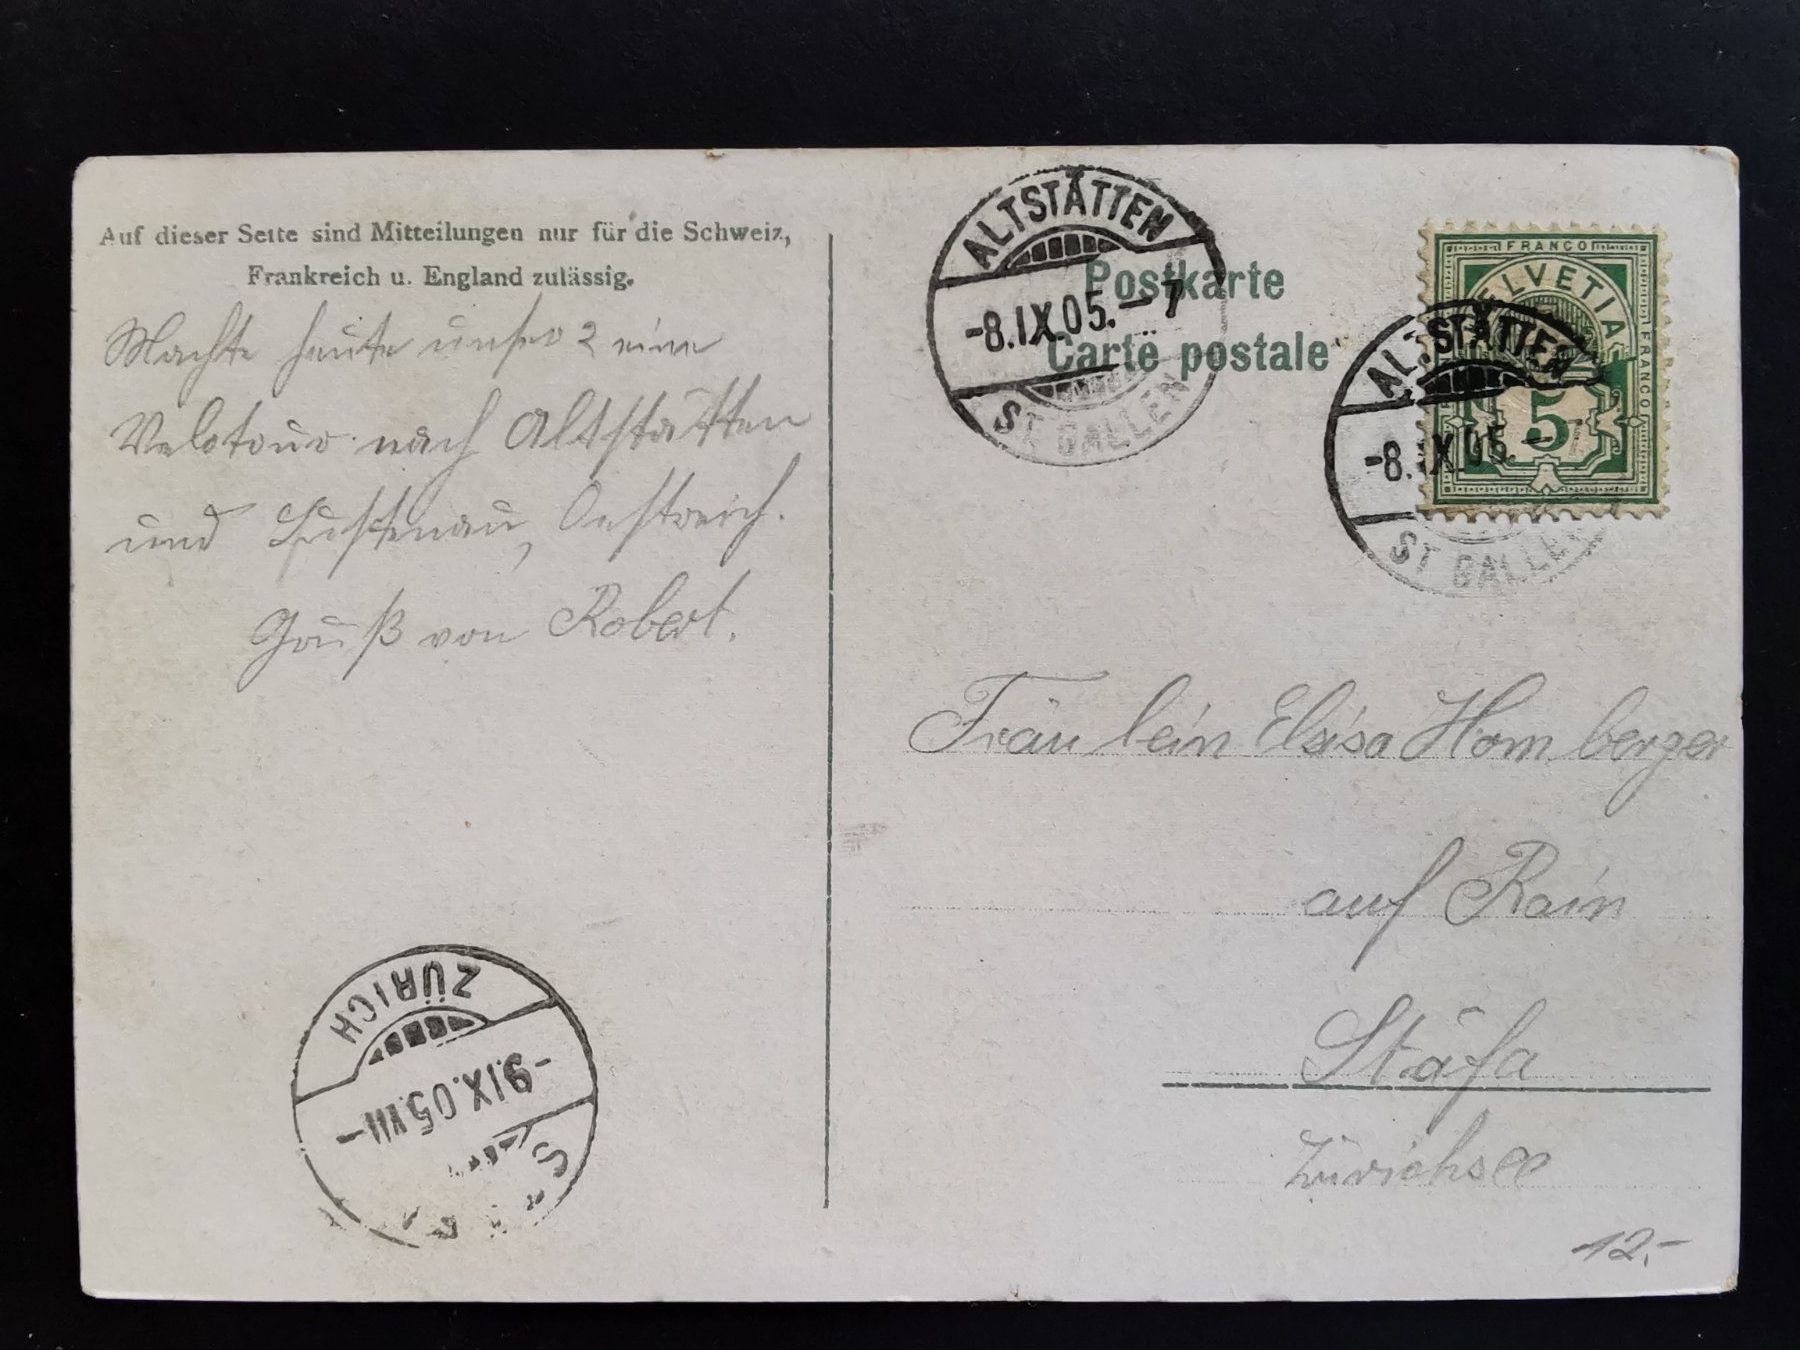 Auf dieser Seite sind Mitteilungen nur für die Schweiz,
Frankreich u. England zulässig.
Machte heute unser 2 eine
Velotour nach Altstätten
und Lustenau, Oestreich.
Gruß von Robert.
Postkarte
Carte postale
ALTSTÄTTEN
-8.IX.05.-7
ST GALLEN
FRANCO
HELVETIA
FRANCO
5
ALTSTÄTTEN
-8.IX.05.-7
ST GALLEN
Fräulein Elsisa Homberger
auf Rain
Stäfa
Zürichsee
12.-
ZÜRICH
-9.IX.05.VII-